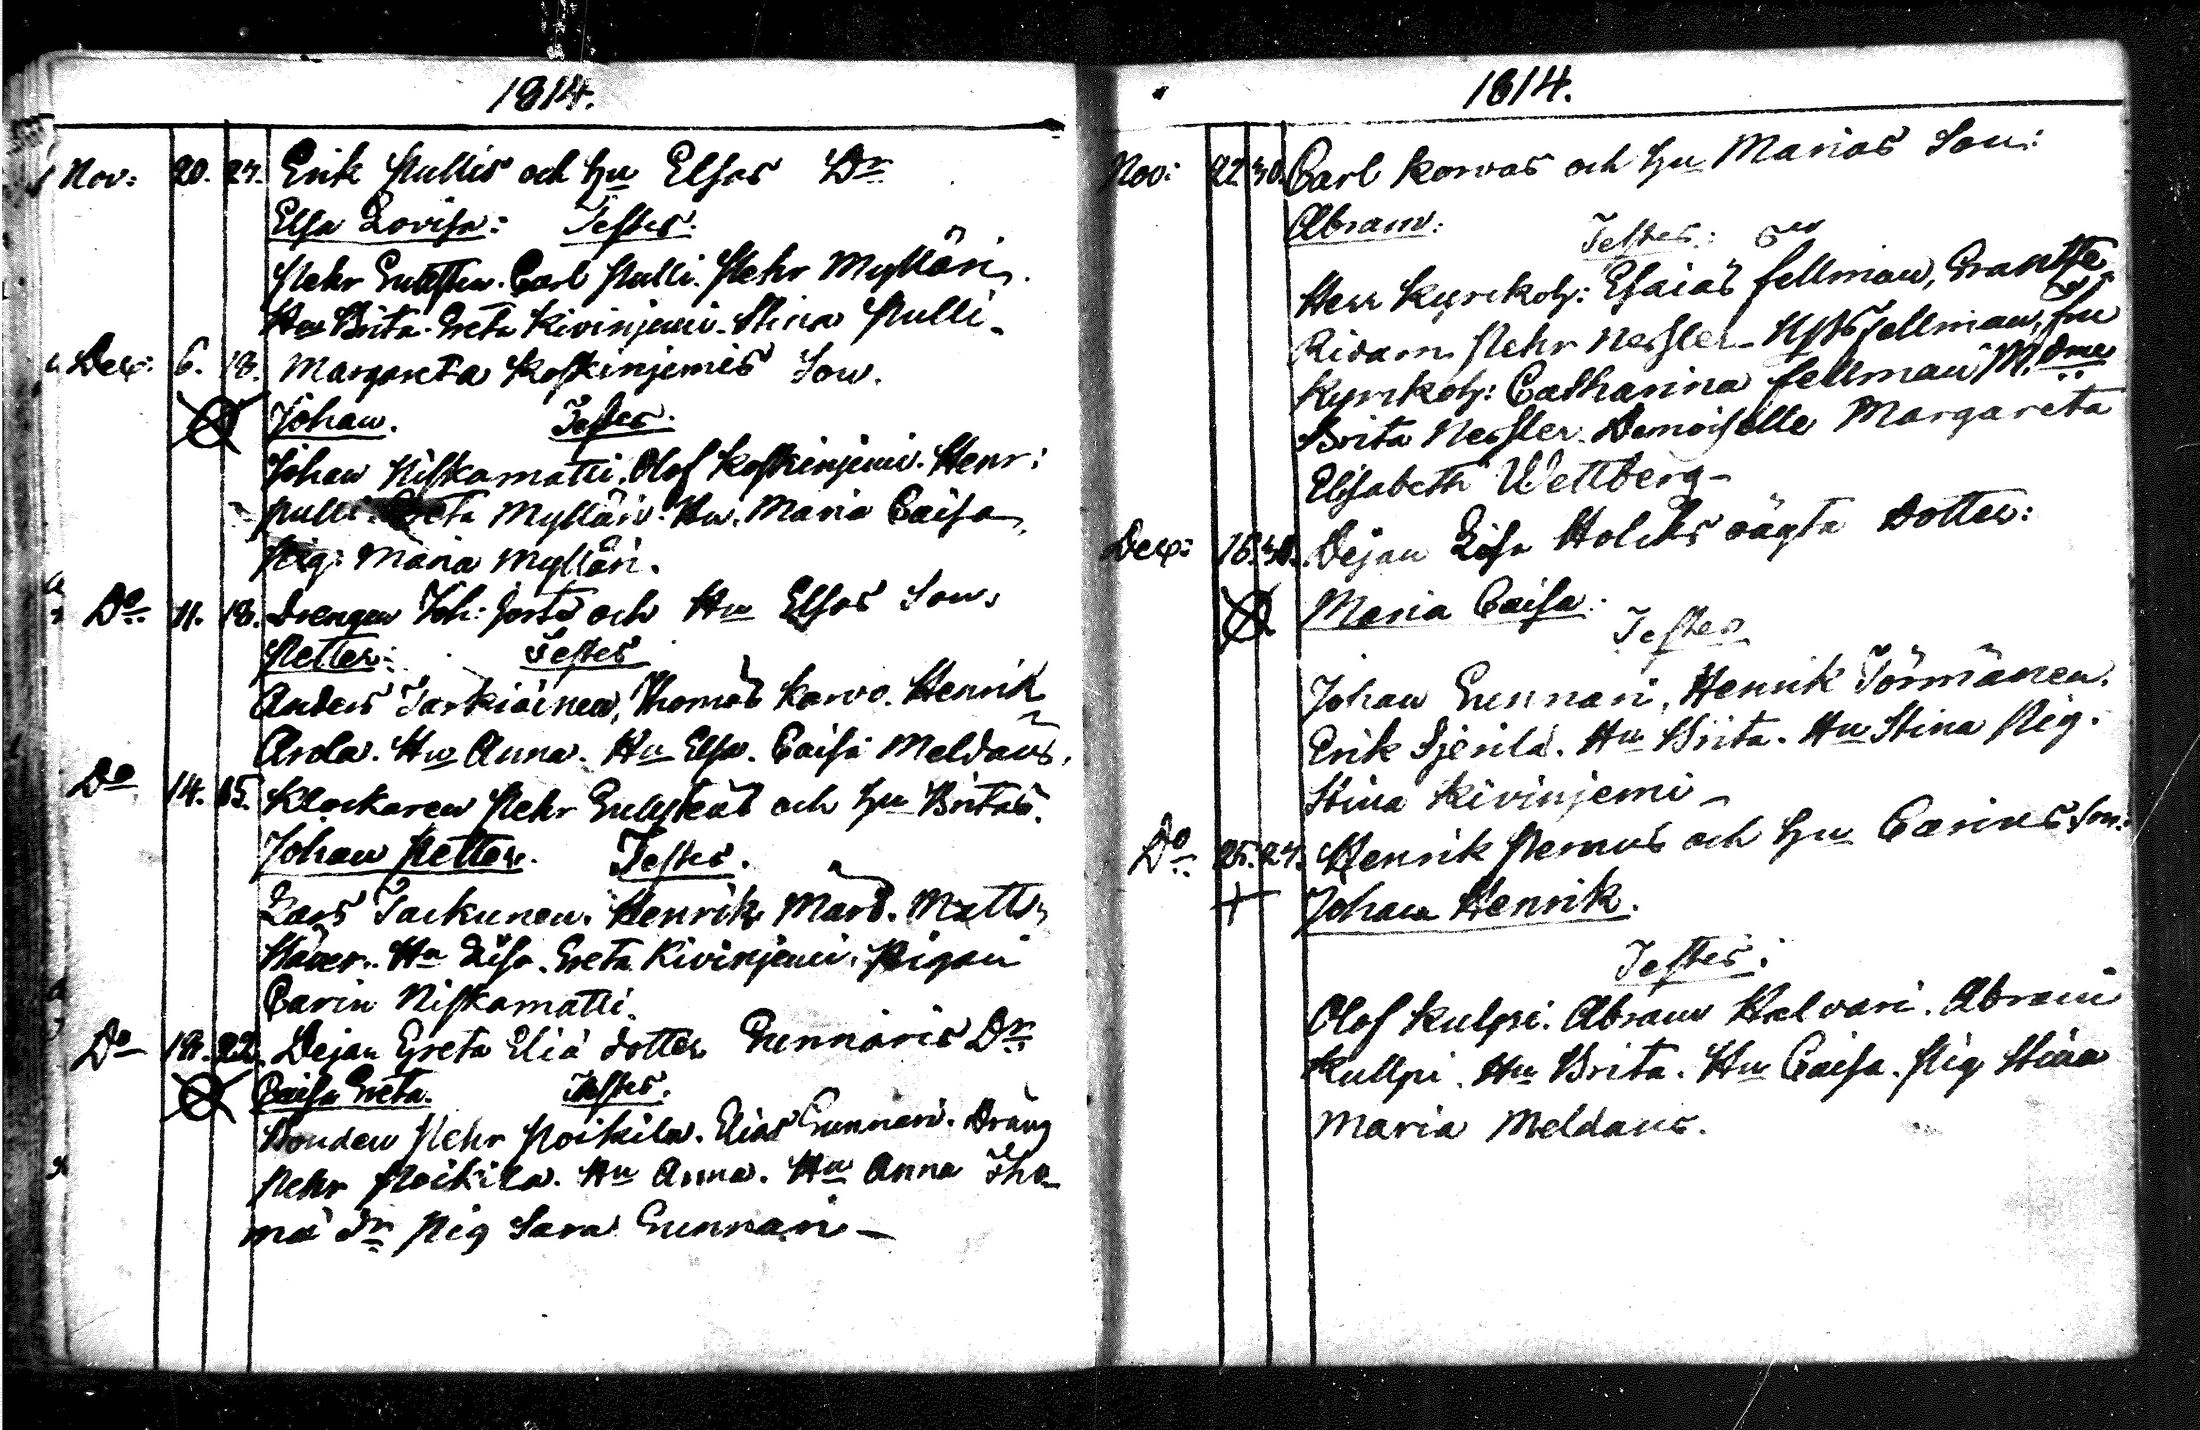 1814.
Nov: 20. 27. Erik Pullis och Hu Elsas Dr
Elsa Lovisa: Testes:
Pehr Carl Pulli. Pehr Myllari.
Hu Brita. Greta Kivinjemi. Stina Pulli.
Dec: 6. 18. Margareta Koskinjemis Son.
Johan. Testes:
Johan Niskamatti. Olof Koskinjemi. Henr:
Pulli. Greta Myllari. Hu. Maria Caisa,
Pig: Maria Myllari.
Do 11. 18. Drengen Joh: och Hu Elsas Son.
Petter: Testes
Anders Tarkiainen, Thomas Karvo. Henrik
Arola. Hu Anna. Hu Elsa. Caisa Meldaus.
Do 14. 15. Klockaren Pehr och Hu Britas.
Johan Petter. Testes.
Lars Henrik Matts
Hu Lisa. Greta Kivinjemi. Pigan
Carin Niskamatti.
Do 18. 22. Dejan Greta Elia dotter Gunnaris Dr
Caisa Greta. Testes.
Bonden Pehr Poikila. Elias Gunnari. Dräng
Pehr Poikila. Hu Anna. Hu Anna Tho-
ma dr Pig Sara Gunnari –
1814.
Nov: 22 30. Carl Korvas och Hu Marias Son:
Abram: Testes:
Herr Kyrckoh: Esaias Fellman,
Pehr Nessler Fellman, fru
Kyrckoh: Catharina Fellman,
Brita Nessler. Demoiselle Margareta
Elisabeth Wettberg –
Dec: 18. 30. Dejan Lisa Holcks oägta Dotter:
Maria Caisa. Testes
Johan Gunnari, Henrik Törmänen.
Erik Hu Brita. Hu Stina Pig.
Stina Kivinjemi –
Do 25. 27. Henrik Pernus och Hu Carins Son:
Johan Henrik.
Testes:
Olof Kulpi. Abram Halvari. Abram
Kullpi. Hu Brita. Hu Caisa. Pig Stina
Maria Meldaus.